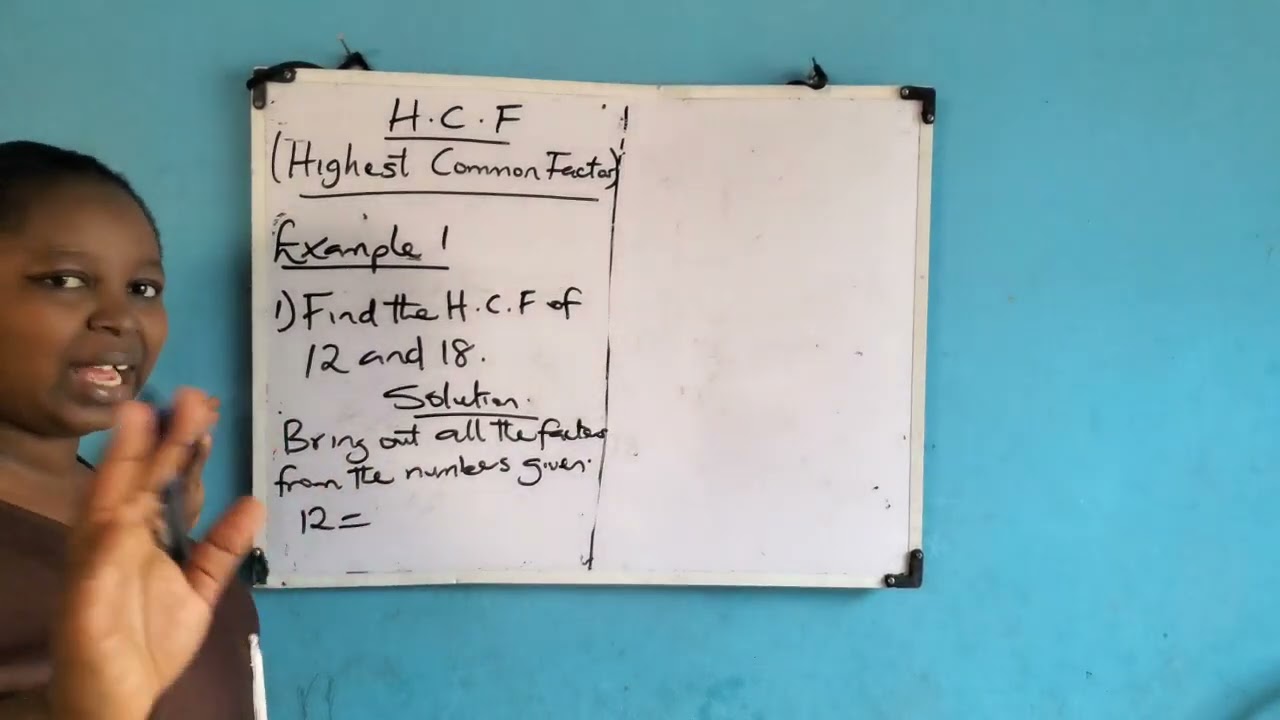 H.C.F
(Highest Common Factor)
Example 1
1) Find the H.C.F of
12 and 18.
Solution.
Bring out all the factors
from the numbers given.
12 =